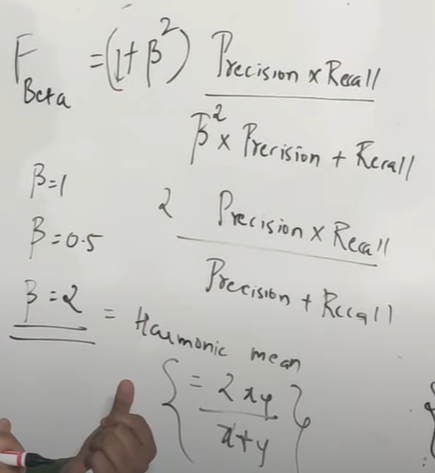 F Beta = (1+β²) Precision x Recall
β² x Precision + Recall
β=1
2 Precision x Recall
β=0.5
Precision + Recall
β=2 = Harmonic mean
{= 2xy
x+y }